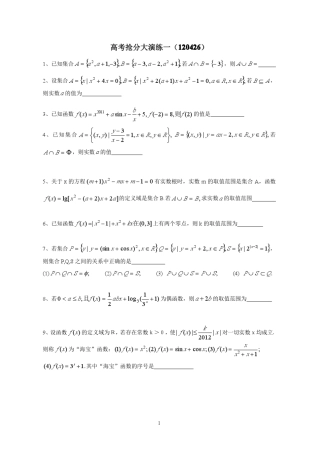 高考抢分大演练一（120426）
1、已知集合A={x²,x+1,-3},B={x-3,2x-1,x²+1},若A∩B={-3}，则A∪B=
2、设集合A={x|x²+4x=0},B={x|x²+2(a+1)x+a²-1=0,x∈R},若B⊆A，
则实数a的值为
3、已知函数f(x)=x²⁰¹¹+a sin x-+5,f(-2)=8,则f(2)的值是
4、已知集合A={(x,y)|(y-3)/(x-2)=1,x∈R,y∈R}，B={(x,y)|y=ax-2,x∈R,y∈R}，若
A∩B=Φ，则实数a的值
5、关于x的方程(m+1)x²-mx+m-1=0有实数根时，实数m的取值范围是集合A，函数
f(x)=lg[x²-(a+2)x+2a]的定义域是集合B若A∪B=B,求实数a的取值范围
6、已知函数f(x)=|x²-1|+x²+kx在(0,3]上有两个零点，则k的取值范围为
7、若集合P={y|y=(sin x+cos x)²,x∈R},Q={x|y=x²+2,x∈R},S={x|2
则集合P,Q,S之间的关系中正确的是
(1)P∩Q∩S=ϕ; (2)P∩Q∩S=P; (3)P∪Q∪S=P∪S; (4)P∪S⊂Q.
8、若0<a≤b,且f(x)=1/2 abx+log₃(1/3ˣ+1)为偶函数，则a+2b的取值范围为
9、设函数f(x)的定义域为R，若存在常数k＞0，使|f(x)|≤k/2012|x|对一切实数x均成立，
则称f(x)为“海宝”函数：(1)f(x)=x²;(2)f(x)=sin x+cos x;(3)f(x)=x/(x²+x+1);
(4)f(x)=3ˣ+1.其中“海宝”函数的序号是
1